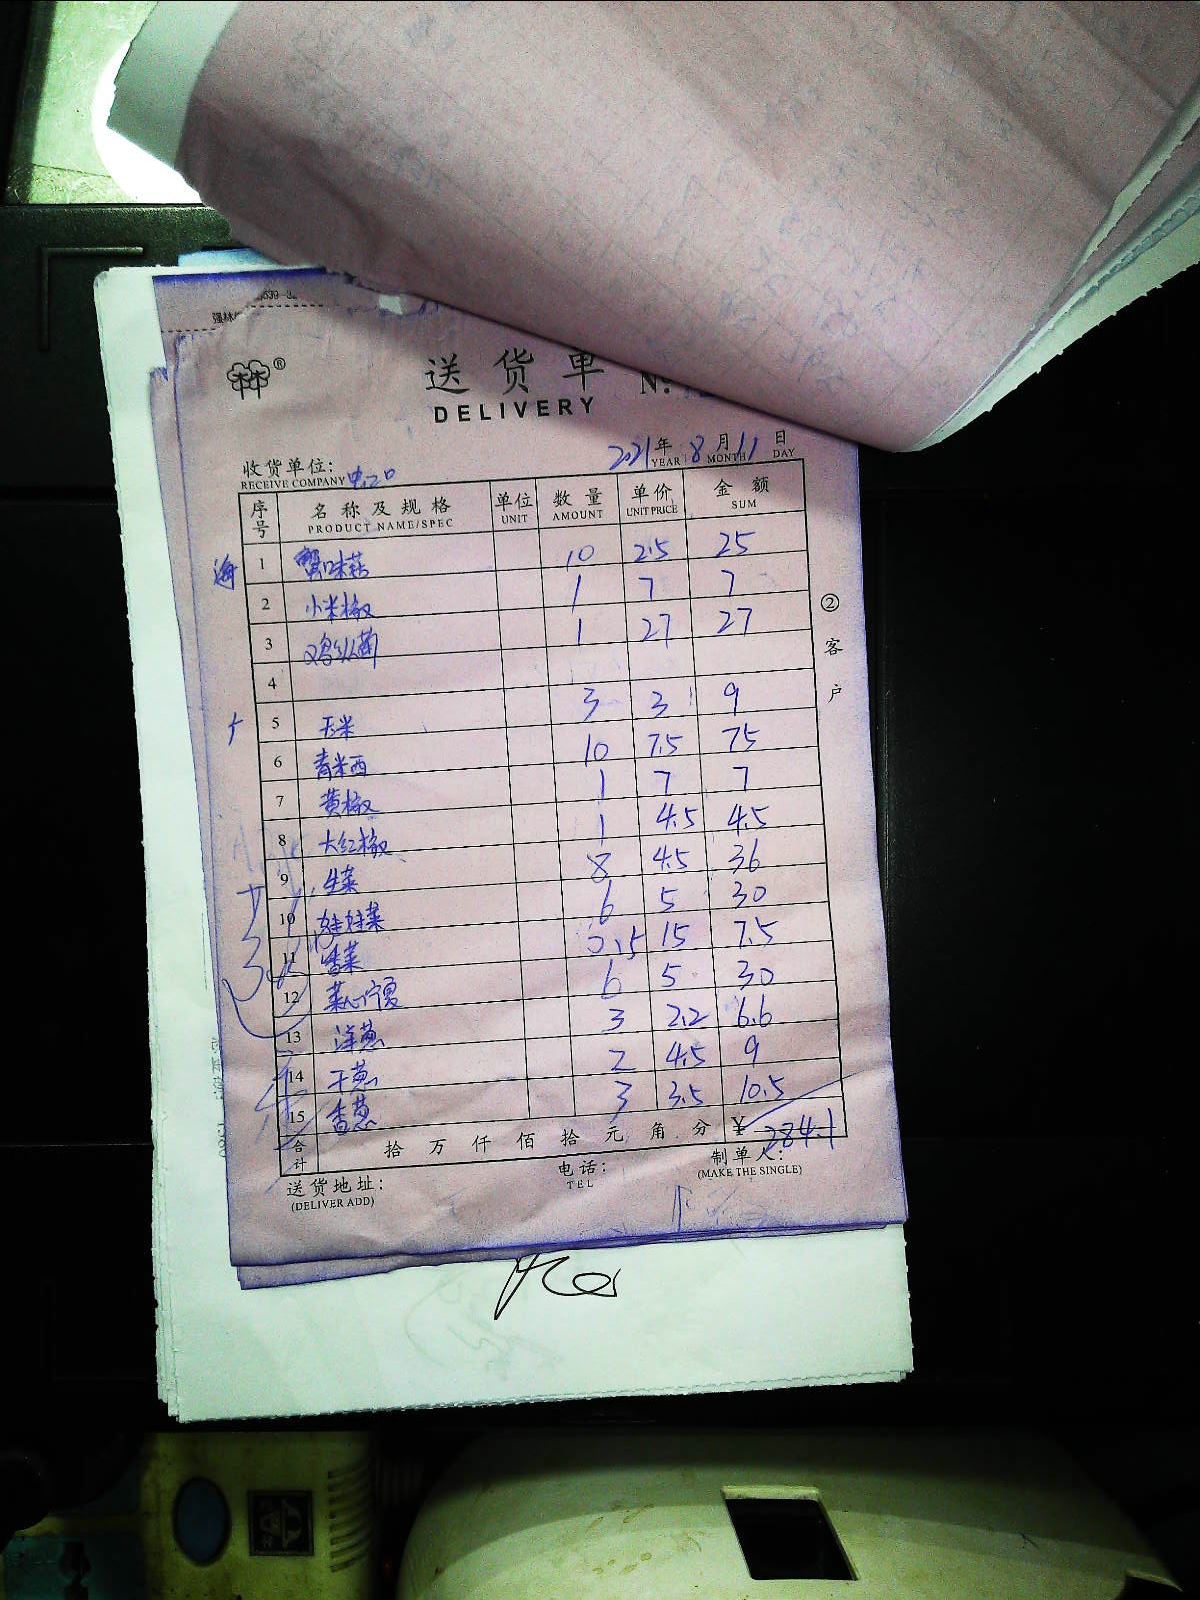 送货单 N:
DELIVERY
2021年 8月 11日
YEAR MONTH DAY
收货单位:
RECEIVE COMPANY
序号 名称及规格 单位 数量 单价 金额
PRODUCT NAME/SPEC UNIT AMOUNT UNIT PRICE SUM
海 1 蟹味菇 10 2.5 25
2 小米椒 1 7 7
3 鸡纵菌 1 27 27
4
5 玉米 3 3 9
6 青米西 10 7.5 75
7 黄椒 1 7 7
8 大红椒 1 4.5 4.5
9 生菜 8 4.5 36
10 娃娃菜 6 5 30
11 香菜 0.5 15 7.5
12 菜心宁夏 6 5 30
13 洋葱 3 2.2 6.6
14 干葱 2 4.5 9
15 香葱 3 3.5 10.5
合计 拾 万 仟 佰 拾 元 角 分 ¥ 284.1
送货地址: 电话: 制单人:
(DELIVER ADD) TEL (MAKE THE SINGLE)
②客户